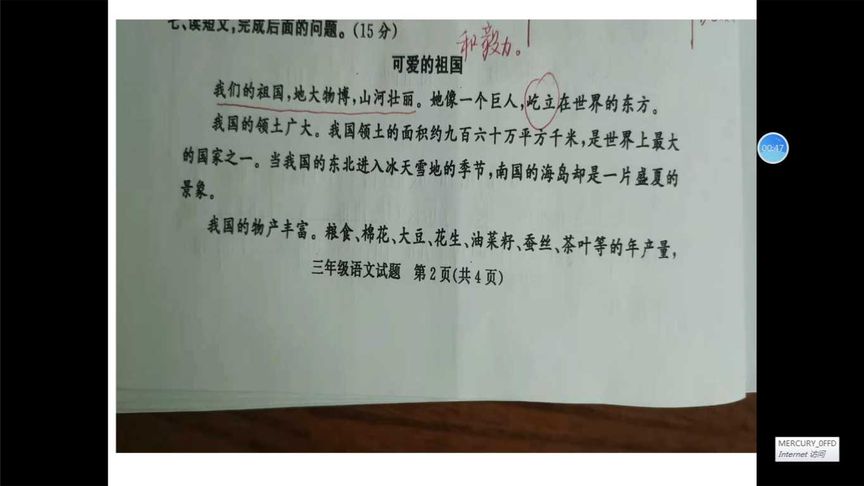 七、读短文,完成后面的问题。(15分)
和毅力。
可爱的祖国
我们的祖国,地大物博,山河壮丽。她像一个巨人,屹立在世界的东方。
我国的领土广大。我国领土的面积约九百六十万平方千米,是世界上最大
的国家之一。当我国的东北进入冰天雪地的季节,南国的海岛却是一片盛夏的
景象。
我国的物产丰富。粮食、棉花、大豆、花生、油菜籽、蚕丝、茶叶等的年产量,
三年级语文试题 第2页(共4页)
00:47
MERCURY_0FFD
Internet 访问